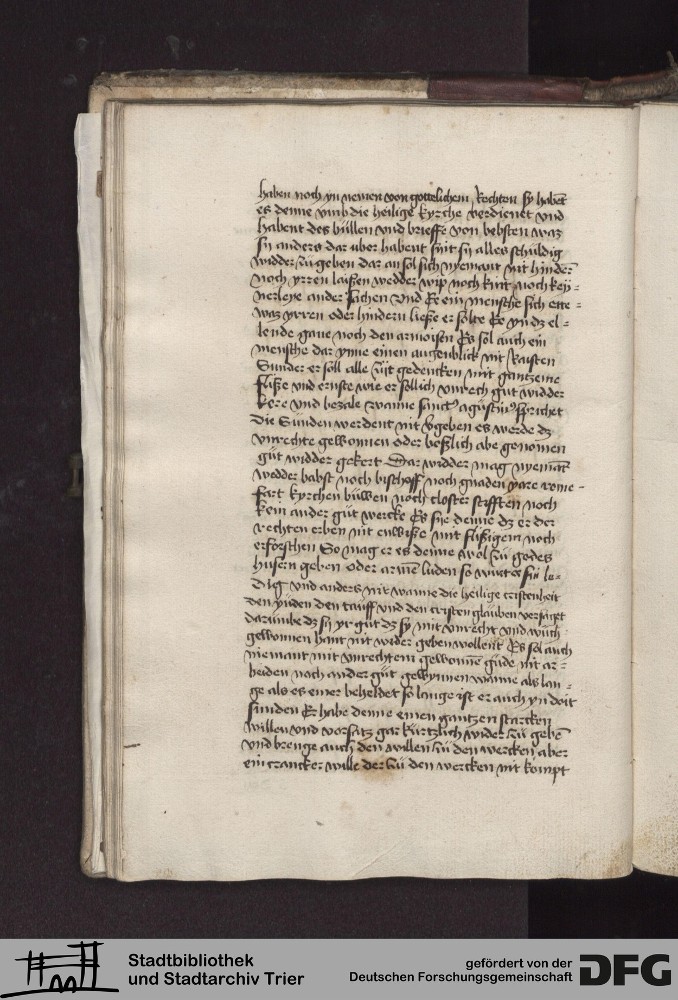 haben noch yn nemen von gottelichem Rechten sy habēt
es denne vmb die heilige kyrche verdienet vnd
habent des bullen vnd brieffe von bebsten waz
sy anders dar uber habent synt sy alles schuldig
widder zu geben dar an sol sich nyemant nit hindern̄
noch yrren laißen wedder wip noch kint noch key-
nerleye ander sachen vnd Ee ein mensche sich ette-
waz yrren oder hindern ließe er solte Ee yn dz el-
lende gane noch den armoisen Es sol auch ein
mensche dar ynne einen augenblick nit Rasten
Sunder er soll alle zijt gedencken mit gantzeme
fliße vnd ernste wie er sollich vnrech gut widder
kere vnd bezale wanne sanct9 agustin9 sprichet
Die Sunden werdent nit vgeben es werde dz
vnrechte gewonnen oder boßlich abe genomen
gut widder gekert Dar widder mag nyemāt
wedder babst noch bischoff noch gnaden yare rome-
fart kyrchen buwen noch closter stifften noch
kein ander gut wercke Es sye denne dz er der
rechten erben nit enwiße mit flißigem noch
erforschen So mag er es denne wol zu godes
husern geben oder armē luden so wurt er sin le-
dig vnd anders nit wanne die heilige cristenheit
den yuden den tauff vnd den cristen glauben versaget
darumbe dz sy yr gut dz sy mit vnrecht vnd wuch
gewonnen hant nit weder geben wollent Es sol auch
niemant mit vnrechtem gewonnē gude nit ar-
beiden nach ander gut gewynnen wanne als lan-
ge als es einer beheldet so lange ist er auch yn doit
sunden Er habe denne einen gantzen starcken
willen vnd vorsatz gar kurtzlich wider zu gebē
vnd brenge auch den willen zu den wercken aber
ein crancker wille der zu den wercken nit kompt
Stadtbibliothek
und Stadtarchiv Trier
gefördert von der
Deutschen Forschungsgemeinschaft
DFG